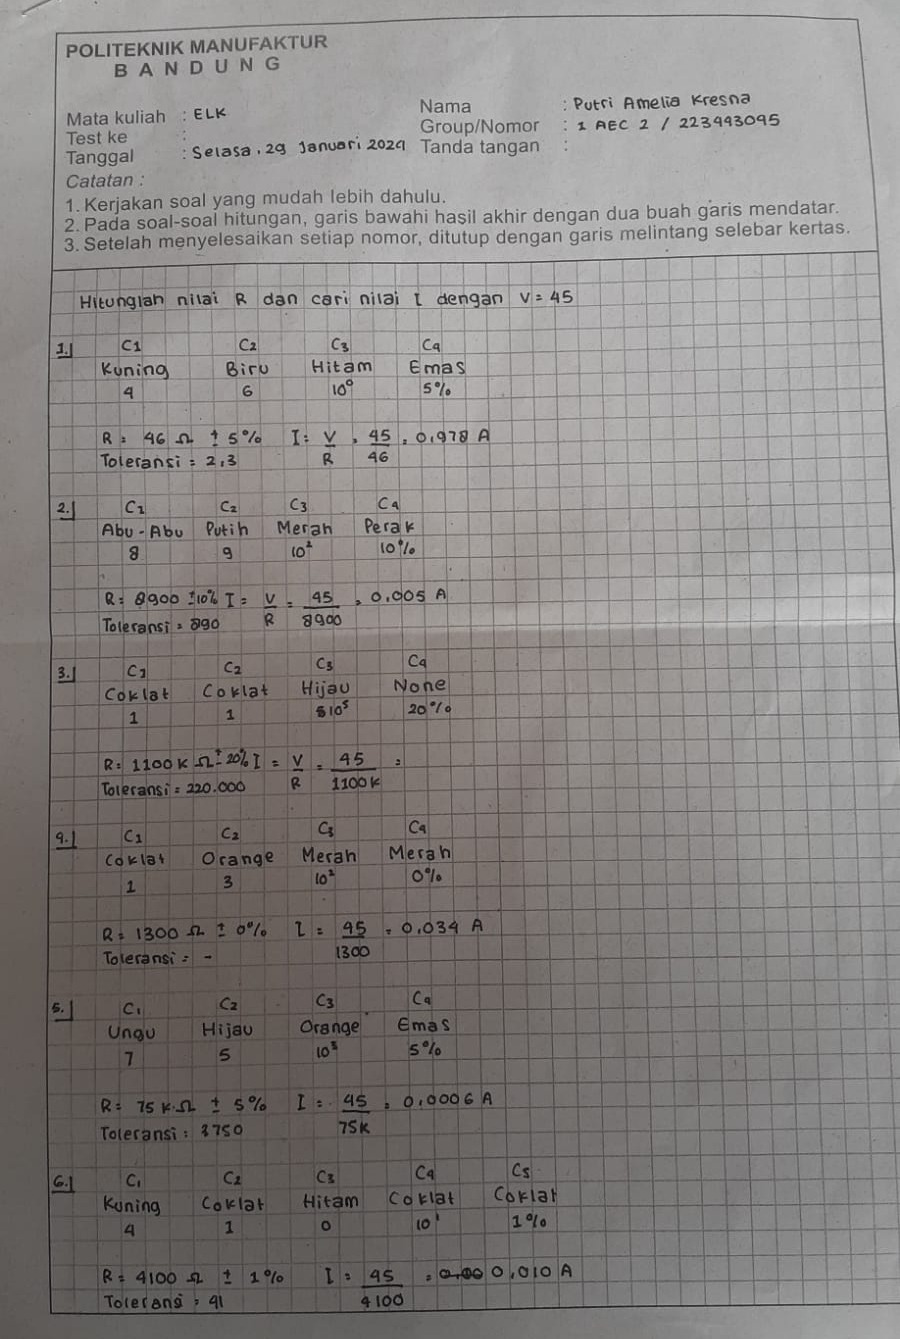 POLITEKNIK MANUFAKTUR
BANDUNG
Mata kuliah : ELK
Nama : Putri Amelia Kresna
Test ke :
Group/Nomor : 1 AEC 2 / 223443045
Tanggal : Selasa, 29 Januari 2024
Tanda tangan :
Catatan :
1. Kerjakan soal yang mudah lebih dahulu.
2. Pada soal-soal hitungan, garis bawahi hasil akhir dengan dua buah garis mendatar.
3. Setelah menyelesaikan setiap nomor, ditutup dengan garis melintang selebar kertas.
Hitunglah nilai R dan cari nilai I dengan V = 45
1.] C1 C2 C3 C4
Kuning Biru Hitam Emas
4 6 10⁰ 5%
R = 46 Ω ± 5% I = V/R = 45/46 = 0,978 A
Toleransi = 2,3
2.] C1 C2 C3 C4
Abu-Abu Putih Merah Perak
8 9 10² 10%
R = 8900 ±10% I = V/R = 45/8900 = 0,005 A
Toleransi = 890
3.] C1 C2 C3 C4
Coklat Coklat Hijau None
1 1 10⁵ 20%
R = 1100K Ω ± 20% I = V/R = 45/1100K =
Toleransi = 220.000
4.] C1 C2 C3 C4
Coklat Orange Merah Merah
1 3 10² 0%
R = 1300 Ω ± 0% I = 45/1300 = 0,034 A
Toleransi = -
5.] C1 C2 C3 C4
Ungu Hijau Orange Emas
7 5 10³ 5%
R = 75 K.Ω ± 5% I = 45/75K = 0,0006 A
Toleransi = 3750
6.] C1 C2 C3 C4 C5
Kuning Coklat Hitam Coklat Coklat
4 1 0 10¹ 1%
R = 4100 Ω ± 1% I = 45/4100 = 0,010 A
Toleransi = 41